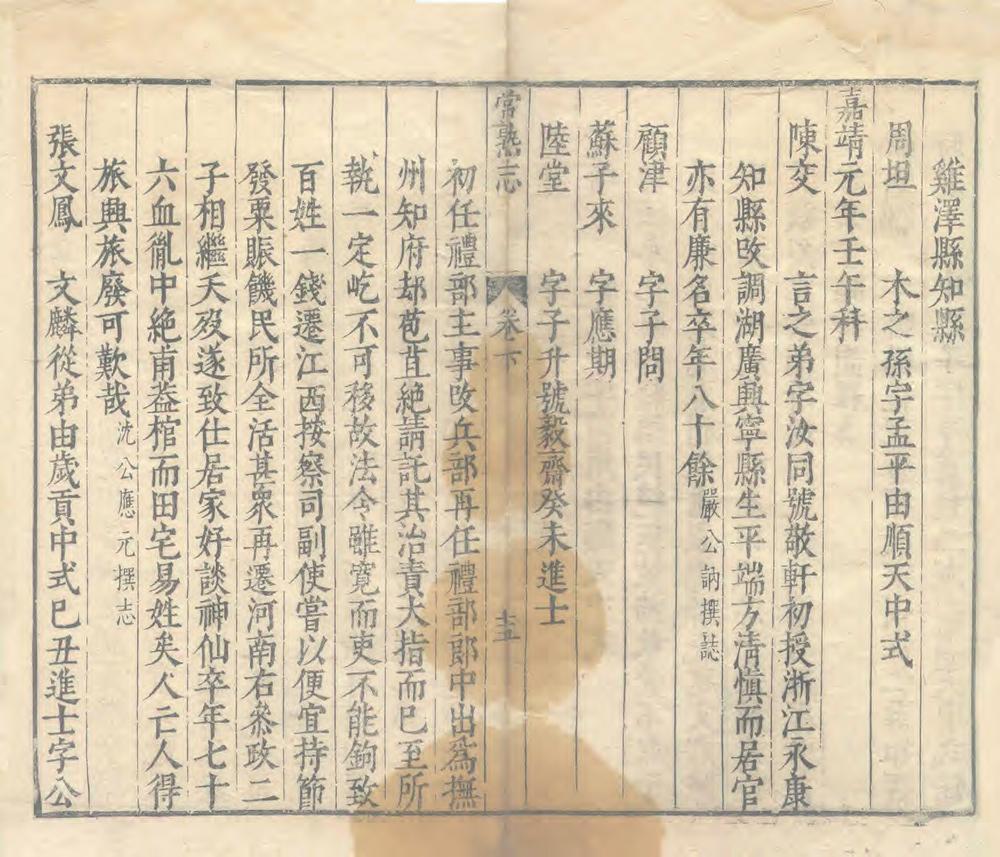 雞澤縣知縣
周坦 木之孫字孟平由順天中式
嘉靖元年壬午科
陳交 言之弟字汝同號敬軒初授浙江永康
知縣改調湖廣興寧縣生平端方清愼而居官
亦有廉名卒年八十餘嚴公訥撰誌
顧津 字子問
蘇子來 字應期
陸堂 字子升號毅齋癸未進士
常熟志 卷下 十五
初任禮部主事改兵部再任禮部郎中出爲撫
州知府却苞苴絶請託其治責大指而已至所
執一定屹不可移故法令雖寬而吏不能鉤致
百姓一錢遷江西按察司副使嘗以便宜持節
發粟賑饑民所全活甚衆再遷河南右叅政二
子相繼夭歿遂致仕居家好談神仙卒年七十
六血胤中絶甫葢棺而田宅易姓矣人亡人得
旅興旅廢可歎哉沈公應元撰志
張文鳳 文麟從弟由歲貢中式已丑進士字公